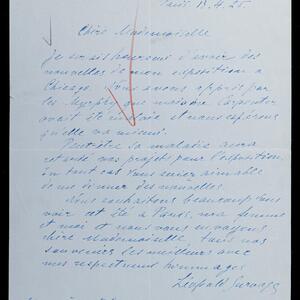 Paris 13.4.25.
Chère Mademoiselle
Je serais heureux d'avoir des
nouvelles de mon exposition à
Chicago. Nous avons appris par
les Murphy que madame Carpenter
avait été malade et nous espérons
qu'elle va mieux.
Peut-être sa maladie aura
retardé vos projets pour l'exposition,
en tout cas vous seriez aimable
de me donner des nouvelles.
Nous souhaitons beaucoup vous
voir cet été à Paris, ma femme
et moi et nous vous envoyons
chère Mademoiselle tous nos
souvenirs les meilleurs avec
mes respectueux hommages
Léopold Survage